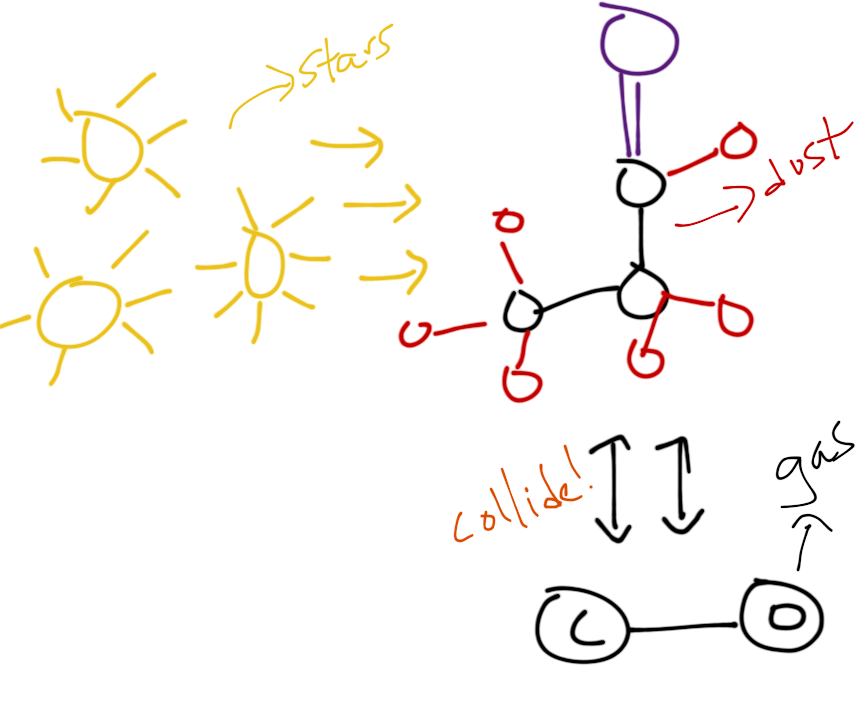 stars
dust
collide!
gas
C O